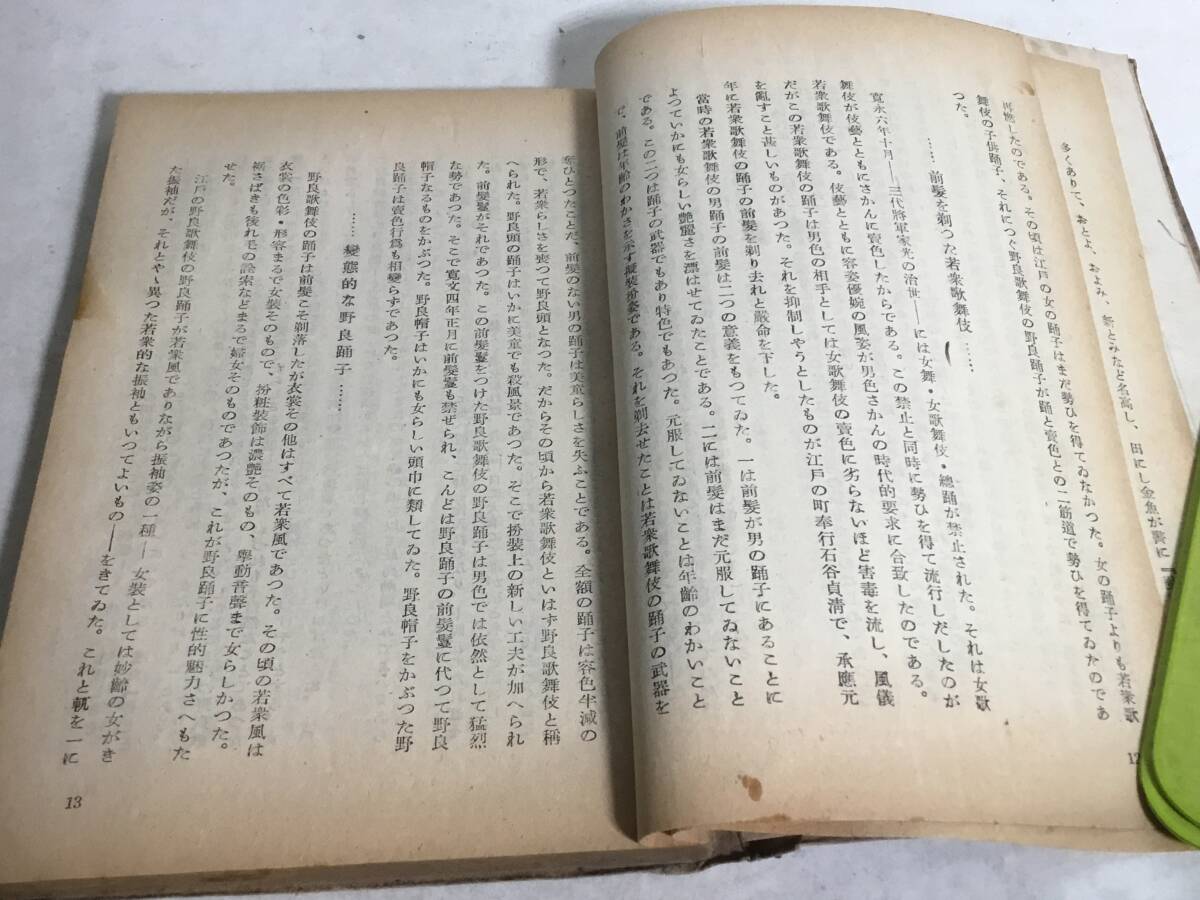 多くありて、おとよ、およみ、新とみなど名高し、田にし金魚が著に
再應したのである。その頃は江戸の女の踊子はまだ勢ひを得てゐなかつた。女の踊子よりも若衆歌
舞伎の子供踊子、それにつぐ野良歌舞伎の野良踊子が踊と賣色との二筋道で勢ひを得てゐたのであ
つた。
……前髪を剃つた若衆歌舞伎……
寛永六年十月――三代將軍家光の治世――には女舞・女歌舞伎・總踊が禁止された。それは女歌
舞伎が伎藝とともにさかんに賣色したからである。この禁止と同時に勢ひを得て流行しだしたのが
若衆歌舞伎である。伎藝とともに容姿優婉の風姿が男色さかんの時代的要求に合致したのである。
だがこの若衆歌舞伎の踊子は男色の相手としては女歌舞伎の賣色に劣らないほど害毒を流し、風儀
を亂すこと甚しいものがあつた。それを抑制しやうとしたものが江戸の町奉行石谷貞淸で、承應元
年に若衆歌舞伎の踊子の前髪を剃り去れと嚴命を下した。
當時の若衆歌舞伎の男踊子の前髪は二つの意義をもつてゐた。一は前髪が男の踊子にあることに
よつていかにも女らしい艶麗さを漂はせてゐたことである。二には前髪はまだ元服してゐないこと
である。この二つは踊子の武器でもあり特色でもあつた。元服してゐないことは年齡のわかいこと
で、前髪は年齡のわかさを示す擬裝扮姿である。それを剃去せたことは若衆歌舞伎の踊子の武器を
12
奪ひとつたことだ、前髪のない男の踊子は美童らしさを失ふことである。全額の踊子は容色半減の
形で、若衆らしさを喪つて野良頭となつた。だからその頃から若衆歌舞伎といはず野良歌舞伎と稱
へられた。野良頭の踊子はいかに美童でも殺風景であつた。そこで扮裝上の新しい工夫が加へられ
た。前髪鬘がそれであつた。この前髪鬘をつけた野良歌舞伎の野良踊子は男色では依然として猛烈
な勢であつた。そこで寛文四年正月に前髪鬘も禁ぜられ、こんどは野良踊子の前髪鬘に代つて野良
帽子なるものをかぶつた。野良帽子はいかにも女らしい頭巾に類してゐた。野良帽子をかぶつた野
良踊子は賣色行爲も相變らずであつた。
……變態的な野良踊子……
野良歌舞伎の踊子は前髪こそ剃落したが衣裳その他はすべて若衆風であつた。その頃の若衆風は
衣裳の色彩・形容まるで女裝そのもので、扮粧裝飾は濃艶そのもの、擧動音聲まで女らしかつた。
裾さばきも後れ毛の詮索などまるで婦女そのものであつたが、これが野良踊子に性的魅力さへもた
せた。
江戸の野良歌舞伎の野良踊子が若衆風でありながら振袖姿の一種――女裝としては妙齡の女がき
た振袖だが、それとやゝ異つた若衆的な振袖ともいつてよいもの――をきてゐた。これと軌を一に
13